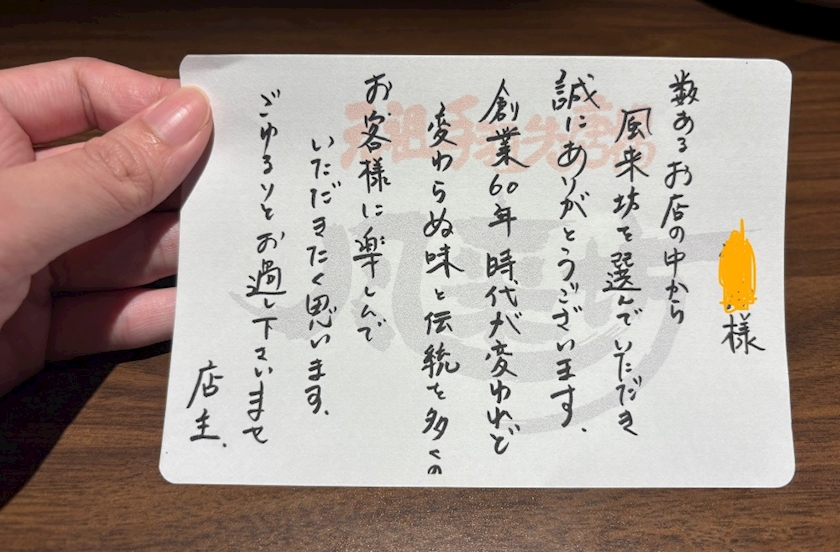 様
数あるお店の中から
風来坊を選んでいただき
誠にありがとうございます。
創業60年 時代が変われど
変わらぬ味と伝統を多くの
お客様に楽しんで
いただきたく思います。
ごゆるりとお過し下さいませ
店主.
元祖手羽先唐揚
風来坊